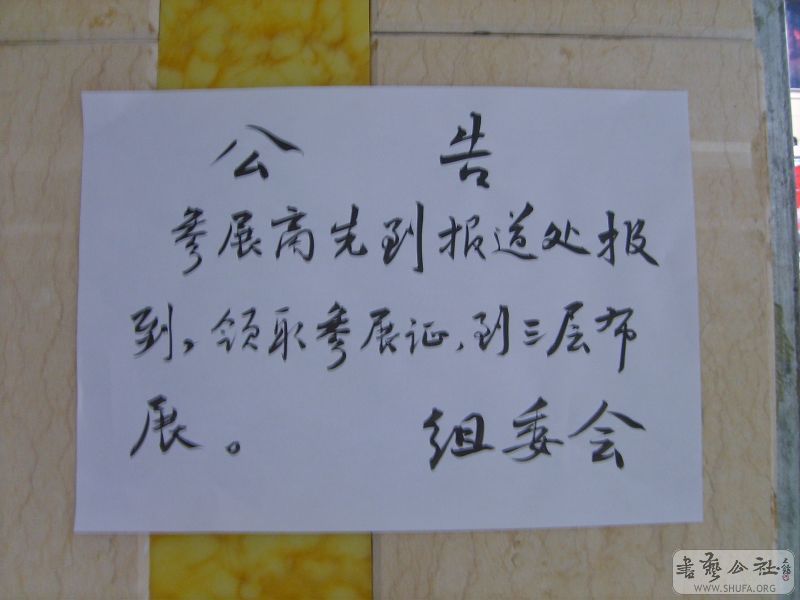 公告
参展商先到报道处报
到，领取参展证，到三层布
展。 组委会
書藝公社
WWW.SHUFA.ORG